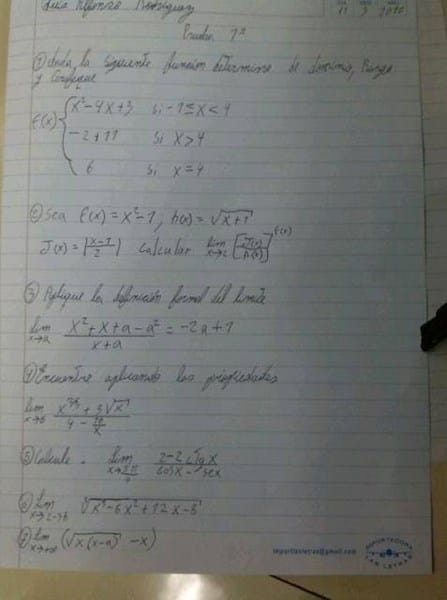 Luis Alfonso Rodriguez
11 3 2010
Prueba 1ª
① dada la siguiente función determine de dominio, Rango
y Grafique
f(x) { x² - 4x + 3 si -1 ≤ x < 4
-2 + 11 si x > 4
6 si x = 4
② Sea f(x) = x² - 1 ; h(x) = √x+1
J(x) = |x-1 / 2| calcular lim x→2 [J(x)/h(x)]^f(x)
③ Aplique la definición formal del limite
lim x→a x² + x + a - a² / x + a = -2a + 1
④ Encuentre aplicando las propiedades
lim
⑤ Calcule
lim 2 - 2 ctg x
⑥ lim x³ - 6x² + 12x - 8
⑦ lim x→+∞ (√x(x-a) - x)
IMPORTADORA
LAS LETRAS
importlasletras@gmail.com